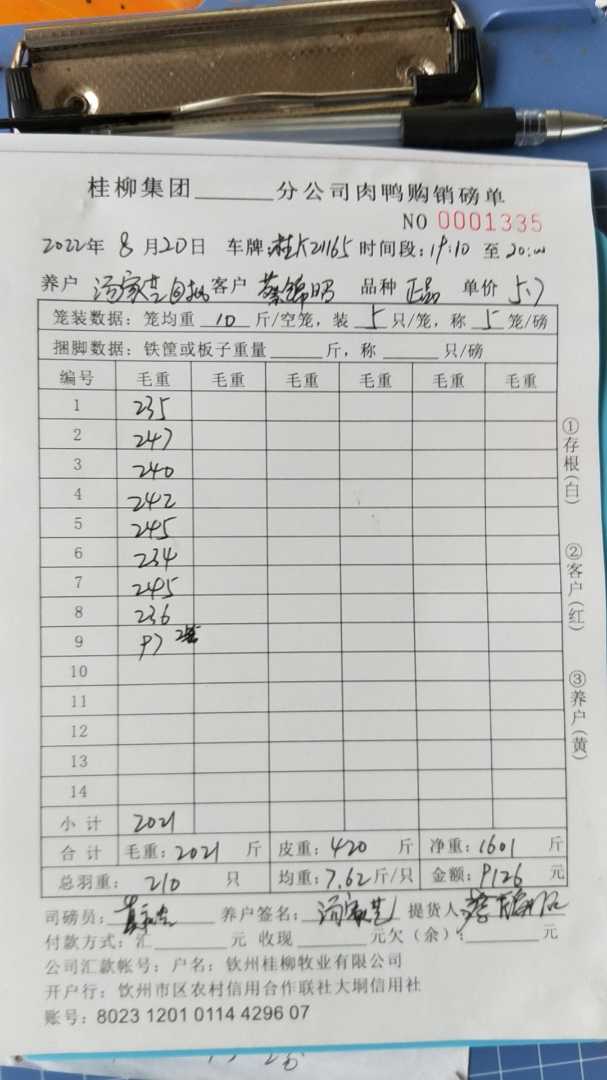 桂柳集团______分公司肉鸭购销磅单
NO 0001335
2022年 8 月20日 车牌:桂K21165 时间段:19:10 至 20:00
养户 汤家芸 客户 蔡锦明 品种 正品 单价 5.7
笼装数据：笼均重 10 斤/空笼，装 5 只/笼，称 5 笼/磅
捆脚数据：铁筐或板子重量______斤，称______只/磅
编号 毛重 毛重 毛重 毛重 毛重
1 235
2 247
3 240
4 242
5 245
6 234
7 245
8 236
9 97
10
11
12
13
14
小计 2021
合计 毛重:2021 斤 皮重:420 斤 净重:1601 斤
总羽重: 210 只 均重:7.62斤/只 金额:9126 元
司磅员: 养户签名: 提货人
付款方式:汇________元 收现________元欠（余）:________元
公司汇款帐号：户名：钦州桂柳牧业有限公司
开户行：钦州市区农村信用合作联社大垌信用社
账号：8023 1201 0114 4296 07
①存根(白)
②客户(红)
③养户(黄)